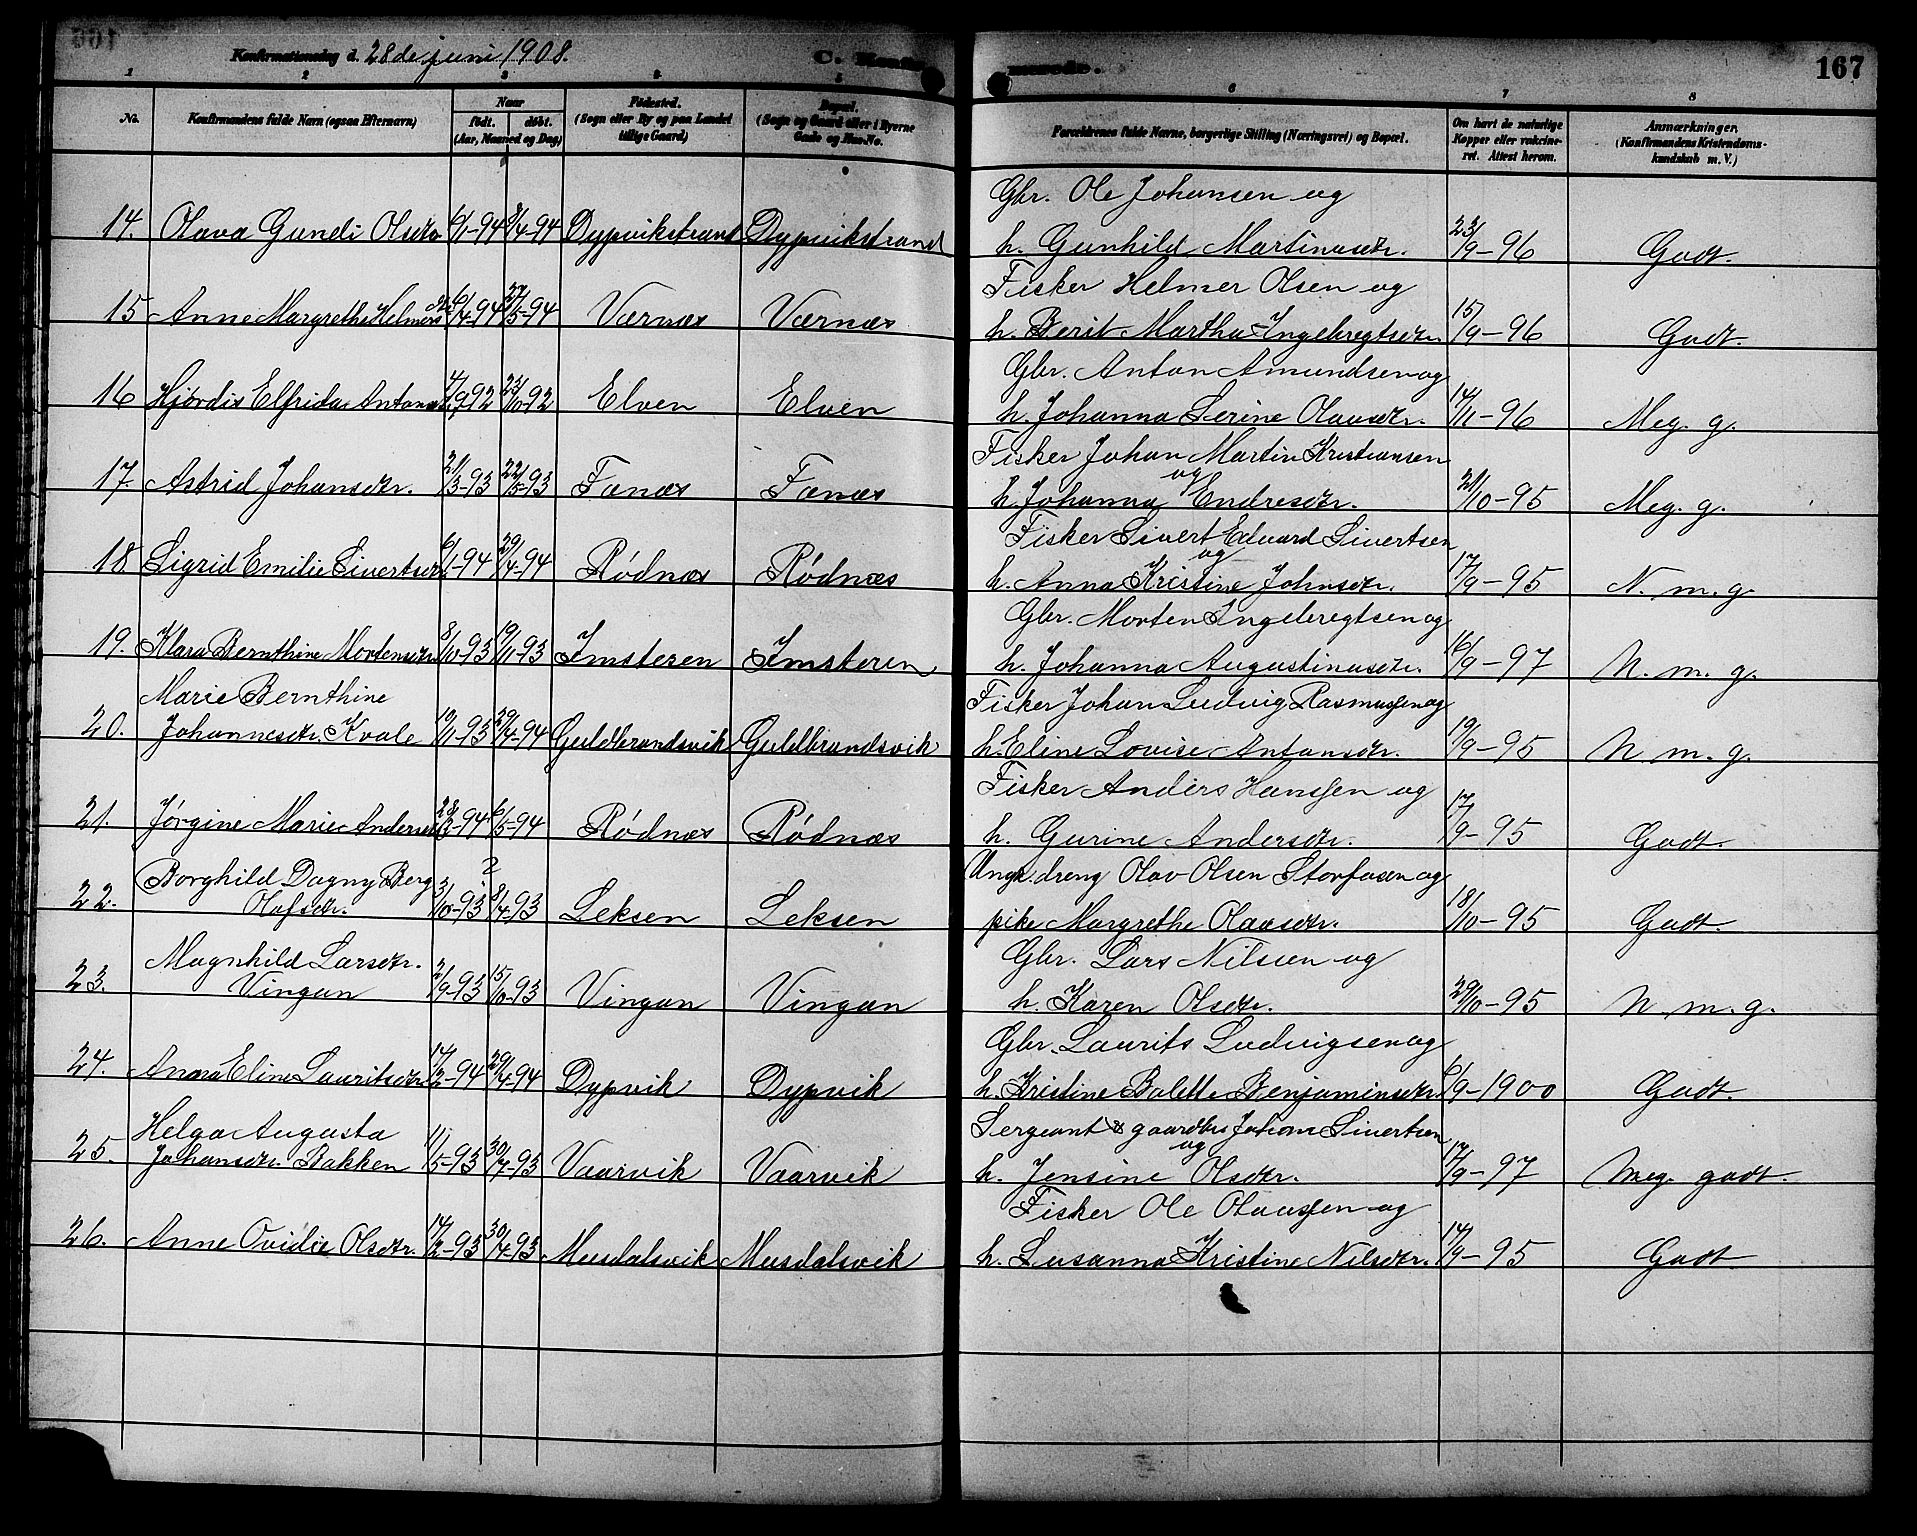 Konfirmationsdag d. 28de juni 1908.
C. Konfirmerede.
167
1 2 3 4 5 6 7 8
No.
Konfirmandens fulde Navn (ogsaa Efternavn)
Naar
født. døbt.
(Aar, Maaned og Dag)
Fødested.
(Sogn eller By og paa Landet
tillige Gaard)
Bopæl.
(Sogn og Gaard eller i Byerne
Gade og Hus-No.
Forældrenes fulde Navne, borgerlige Stilling (Næringsvei) og Bopæl.
Om havt de naturlige
Kopper eller vakcine-
ret. Attest herom.
Anmærkninger.
(Konfirmandens Kristendoms-
kundskab m. V.)
Gbr. Ole Johansen og
14. Olava Gundi Olsdtr 6/1-94 8/4-94 Dypvikstrand Dypvikstrand h. Gunhild Martinusdtr. 23/9-96 Godt.
Fisker Helmer Olsen og
15 Anne Margrethe Helmersdtr 6/4-94 27/5-94 Værnæs Værnæs h. Berit Martha Ingebregtsdtr. 15/9-96 Godt.
Gbr. Anton Amundsen og
16 Hjørdis Elfrida Antonsdtr 4/9-92 23/10-92 Elven Elven h. Johanna Serine Olausdtr. 14/11-96 Meg. g.
Fisker Johan Martin Kristiansen
og
17. Astrid Johansdtr. 21/3-93 22/5-93 Fænæs Fænæs h. Johanna Endresdtr. 21/10-95 Meg. g.
Fisker Sivert Edvard Sivertsen
og
18 Sigrid Emilie Sivertsdtr 6/1-94 29/4-94 Rødnæs Rødnæs h. Anna Kristine Johnsdtr. 17/9-95 N. m. g.
Gbr. Morten Ingebregtsen og
19. Klara Bernthine Mortensdtr. 8/10-93 19/11-93 Imsteren Imsteren h. Johanna Augustinusdtr. 16/9-97 N. m. g.
Marie Bernthine Fisker Johan Ludvig Rasmussen og
20. Johannesdtr. Kvale 19/11-93 29/4-94 Guldbrandsvik Guldbrandsvik h. Eline Lovise Antonsdtr. 19/9-95 N. m. g.
Fisker Anders Hanssen og
21. Jørgine Marie Andersdtr 28/2-94 6/5-94 Rødnæs Rødnæs h. Gurine Andersdtr. 17/9-95 Godt.
Borghild Dagny Berg ? Ungk. dreng Olav Olsen Storfosen og
22. Olafsdtr. 3/10-93 8/4-93 Leksen Leksen pike Margrethe Olausdtr. 18/10-95 Godt.
Magnhild Larsdtr. Gbr. Lars Nilsen og
23. Vingan 2/9-93 15/10-93 Vingan Vingan h. Karen Olsdtr. 29/10-95 N. m. g.
Gbr. Laurits Ludvigsen og
24. Anna Eline Lauritsdtr 17/2-94 29/4-94 Dypvik Dypvik h. Kristine Bolette Benjaminsdtr. 6/9-1900 Godt.
Helga Augusta Sergeant & gaardbr Johan Sivertsen
og
25. Johansdtr. Bakken 11/5-93 30/7-93 Vaarvik Vaarvik h. Jensine Olsdtr. 17/9-97 Meg. godt.
Fisker Ole Olaussen og
26. Anne Ovidie Olsdtr. 14/2-93 30/4-93 Musdalsvik Musdalsvik h. Susanna Kristine Nilsdtr. 14/9-95 Godt